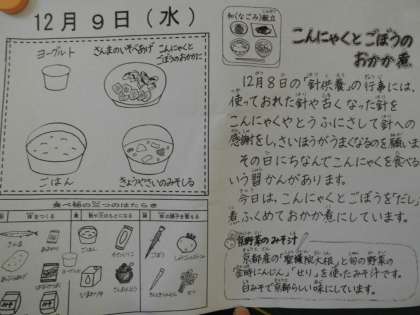 12月9日(水)
ヨーグルト
さんまのいそべあげ
こんにゃくと
ごぼうのおかかに
ごはん
きょうやさいのみそしる
食べ物の三つのはたらき
和(なごみ)献立
こんにゃくとごぼうの
おかか煮
12月8日の「針供養」の行事には、
使っておれた針や古くなった針を
こんにゃくやとうふにさして針への
感謝をし、さいほうがうまくなるのを願います
その日にちなんでこんにゃくを食べる
いう習かんがあります。
今日は、こんにゃくとごぼうを「だし」
煮ふくめておかか煮にしています。
京野菜のみそ汁
京都産の「聖護院大根」と旬の野菜の
「金時にんじん」「せり」を使ったみそ汁です。
白みそで京都らしい味にしています。